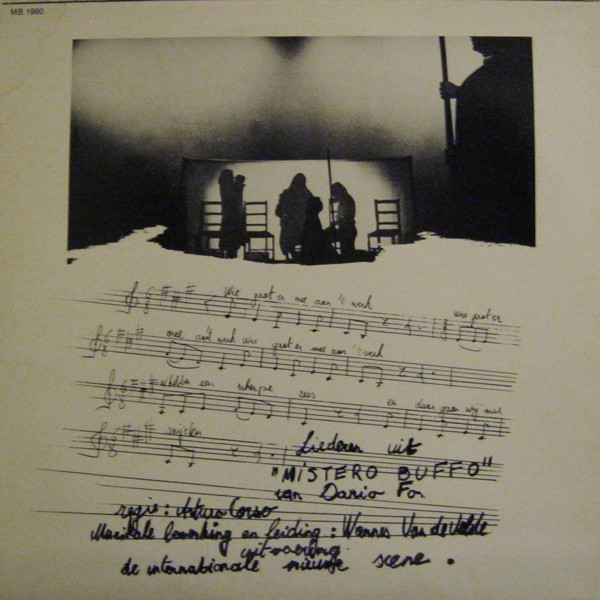 MB 1980
Wie gaat er mee aan 't werk wie gaat er
mee aan 't werk wie gaat er mee aan 't werk
hebben een scherpe zeis en daar gaan wij mee
snijden
Liederen uit
"MISTERO BUFFO"
van Dario Fo
regie: Arturo Corso
Muzikale bewerking en leiding: Wannes Van de Velde
uitvoering:
de internationale nieuwe scene.